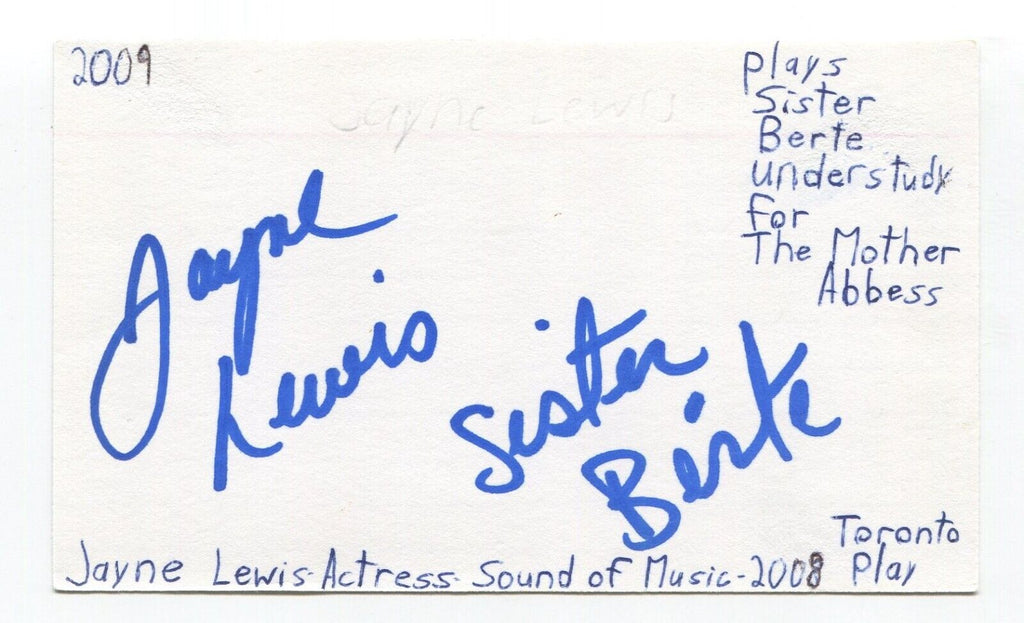 2009
plays
Sister
Berte
understudy
for
The Mother
Abbess
Jayne Lewis
Jayne
Lewis
Sister
Berte
Toronto
Play
Jayne Lewis-Actress-Sound of Music-2008